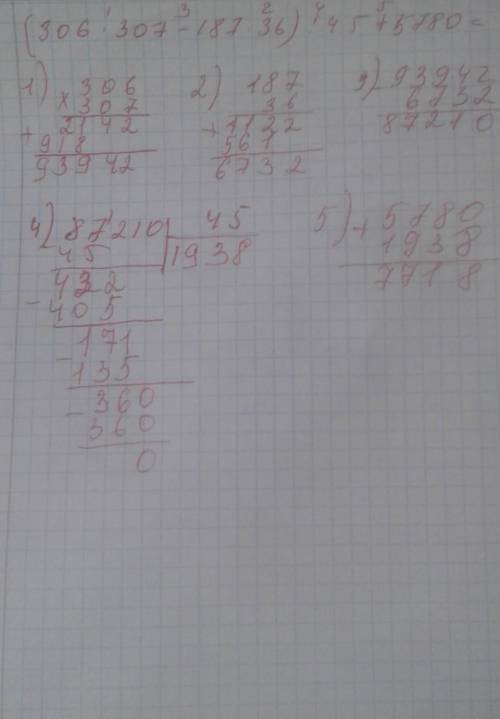 (306 · 307 - 187 · 36) : 45 + 5780 =
1) × 306
307
+ 2142
918
93942
2) 187
36
+ 1122
561
6732
3) - 93942
6732
87210
4) 87210 | 45
45 | 1938
422
- 405
- 171
135
- 360
360
0
5) + 5780
1938
7718